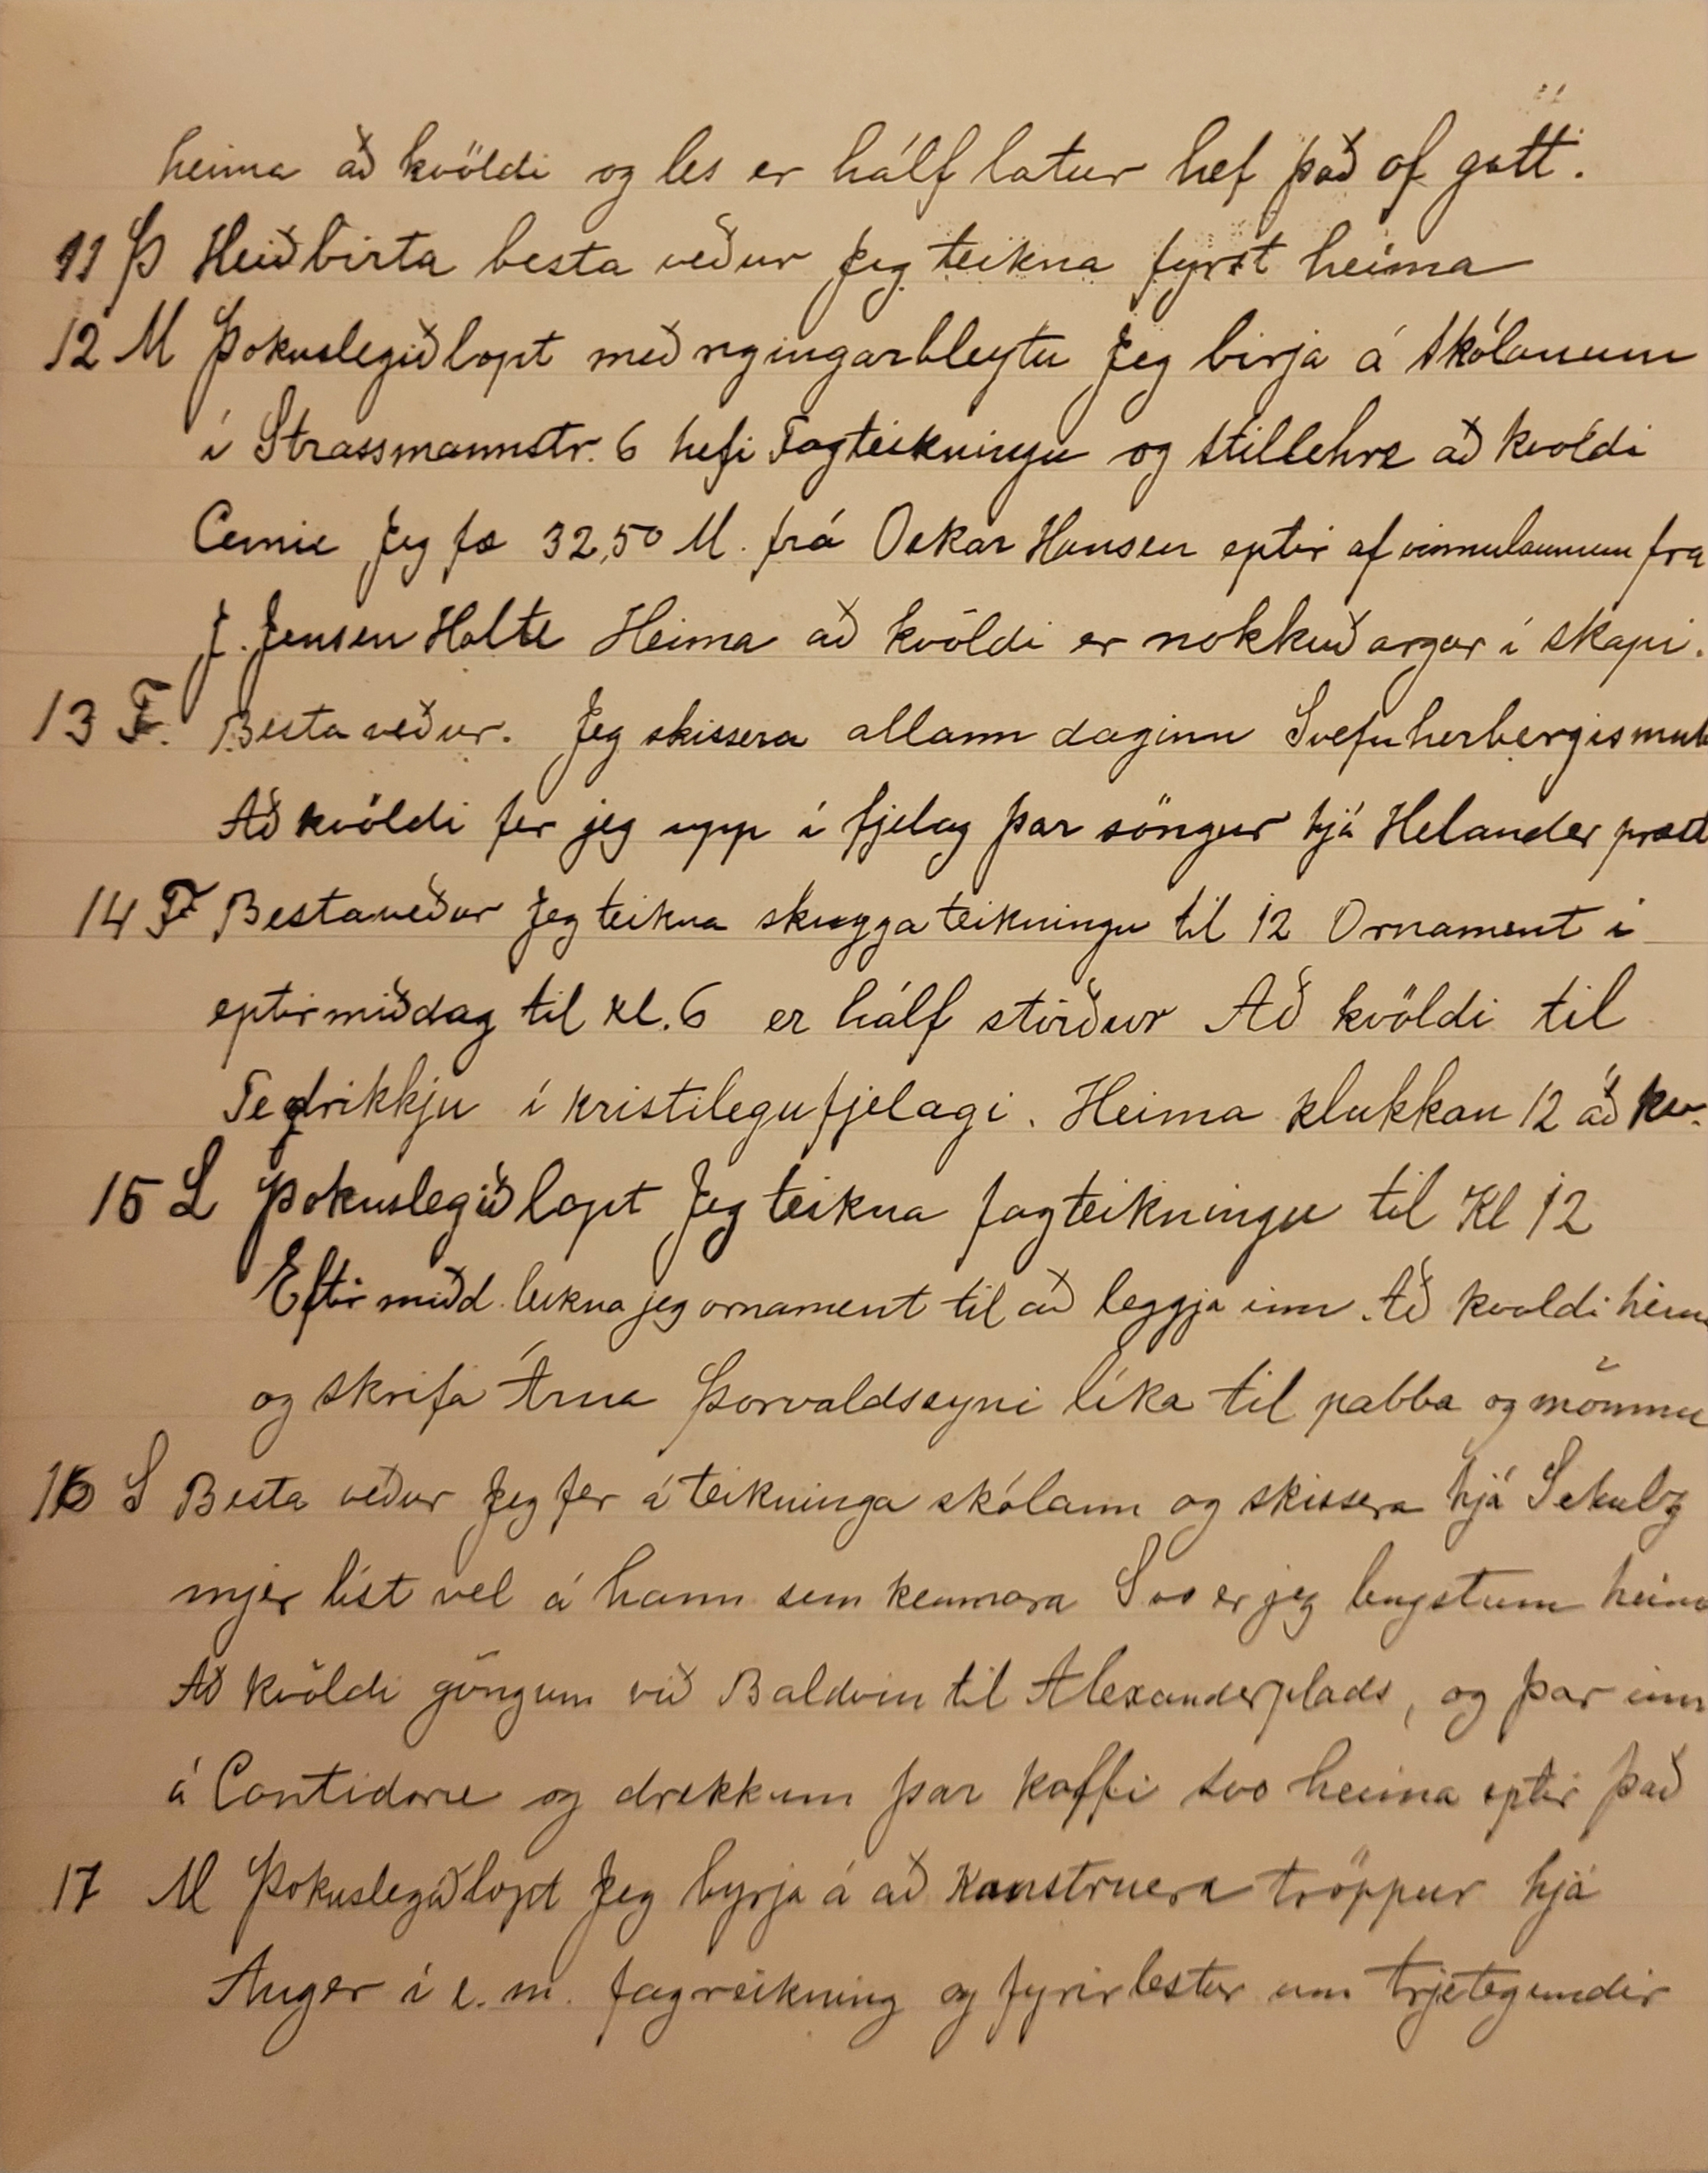 heima að kvöldi og les er hálf latur hef það of gott.
11 Þ Heiðbirta besta veður Jeg teikna fyrst heima
12 M Þokuslegið lopt með rigingarbleytu Jeg birja á skólanum
í Strassmannstr. 6 hefi Fagteikningu og stillehre að kvöldi
Cemie Jeg fæ 32,50 M. frá Oskar Hansen eptir af vinnulaunum fra
J. Jensen Holte Heima að kvöldi er nokkuð argur í skapi.
13 F. Besta veður. Jeg skissera allann daginn
Að kvöldi fer jeg upp í fjelag þar söngur hjá Helander
14 F Bestaveður Jeg teikna skugga teikningu til 12 Ornament i
eptirmiðdag til kl. 6 er hálf stirður Að kvöldi til
Tedrikkju í kristilegufjelagi. Heima klukkan 12 að kv.
15 L Þokuslegið lopt Jeg teikna fagteikningu til Kl 12
Eftir midd. teikna jeg ornament til að leggja inn. Að kvoldi
og skrifa Árna Þorvaldssyni líka til pabba og mömmu
16 S Besta veður Jeg fer á teikninga skólann og skissera hjá Schulz
mjer líst vel á hann sem kennara Svo er jeg lengstum
Að kvöldi göngum við Baldvin til Alexanderplads, og þar inn
á Contidorie og drekkum þar kaffi svo heima eptir það
17 M Þokuslegið lopt Jeg byrja á að Konstruera tröppur hjá
Auger í e. m. fagreikning og fyrirlestur um trjetegundir